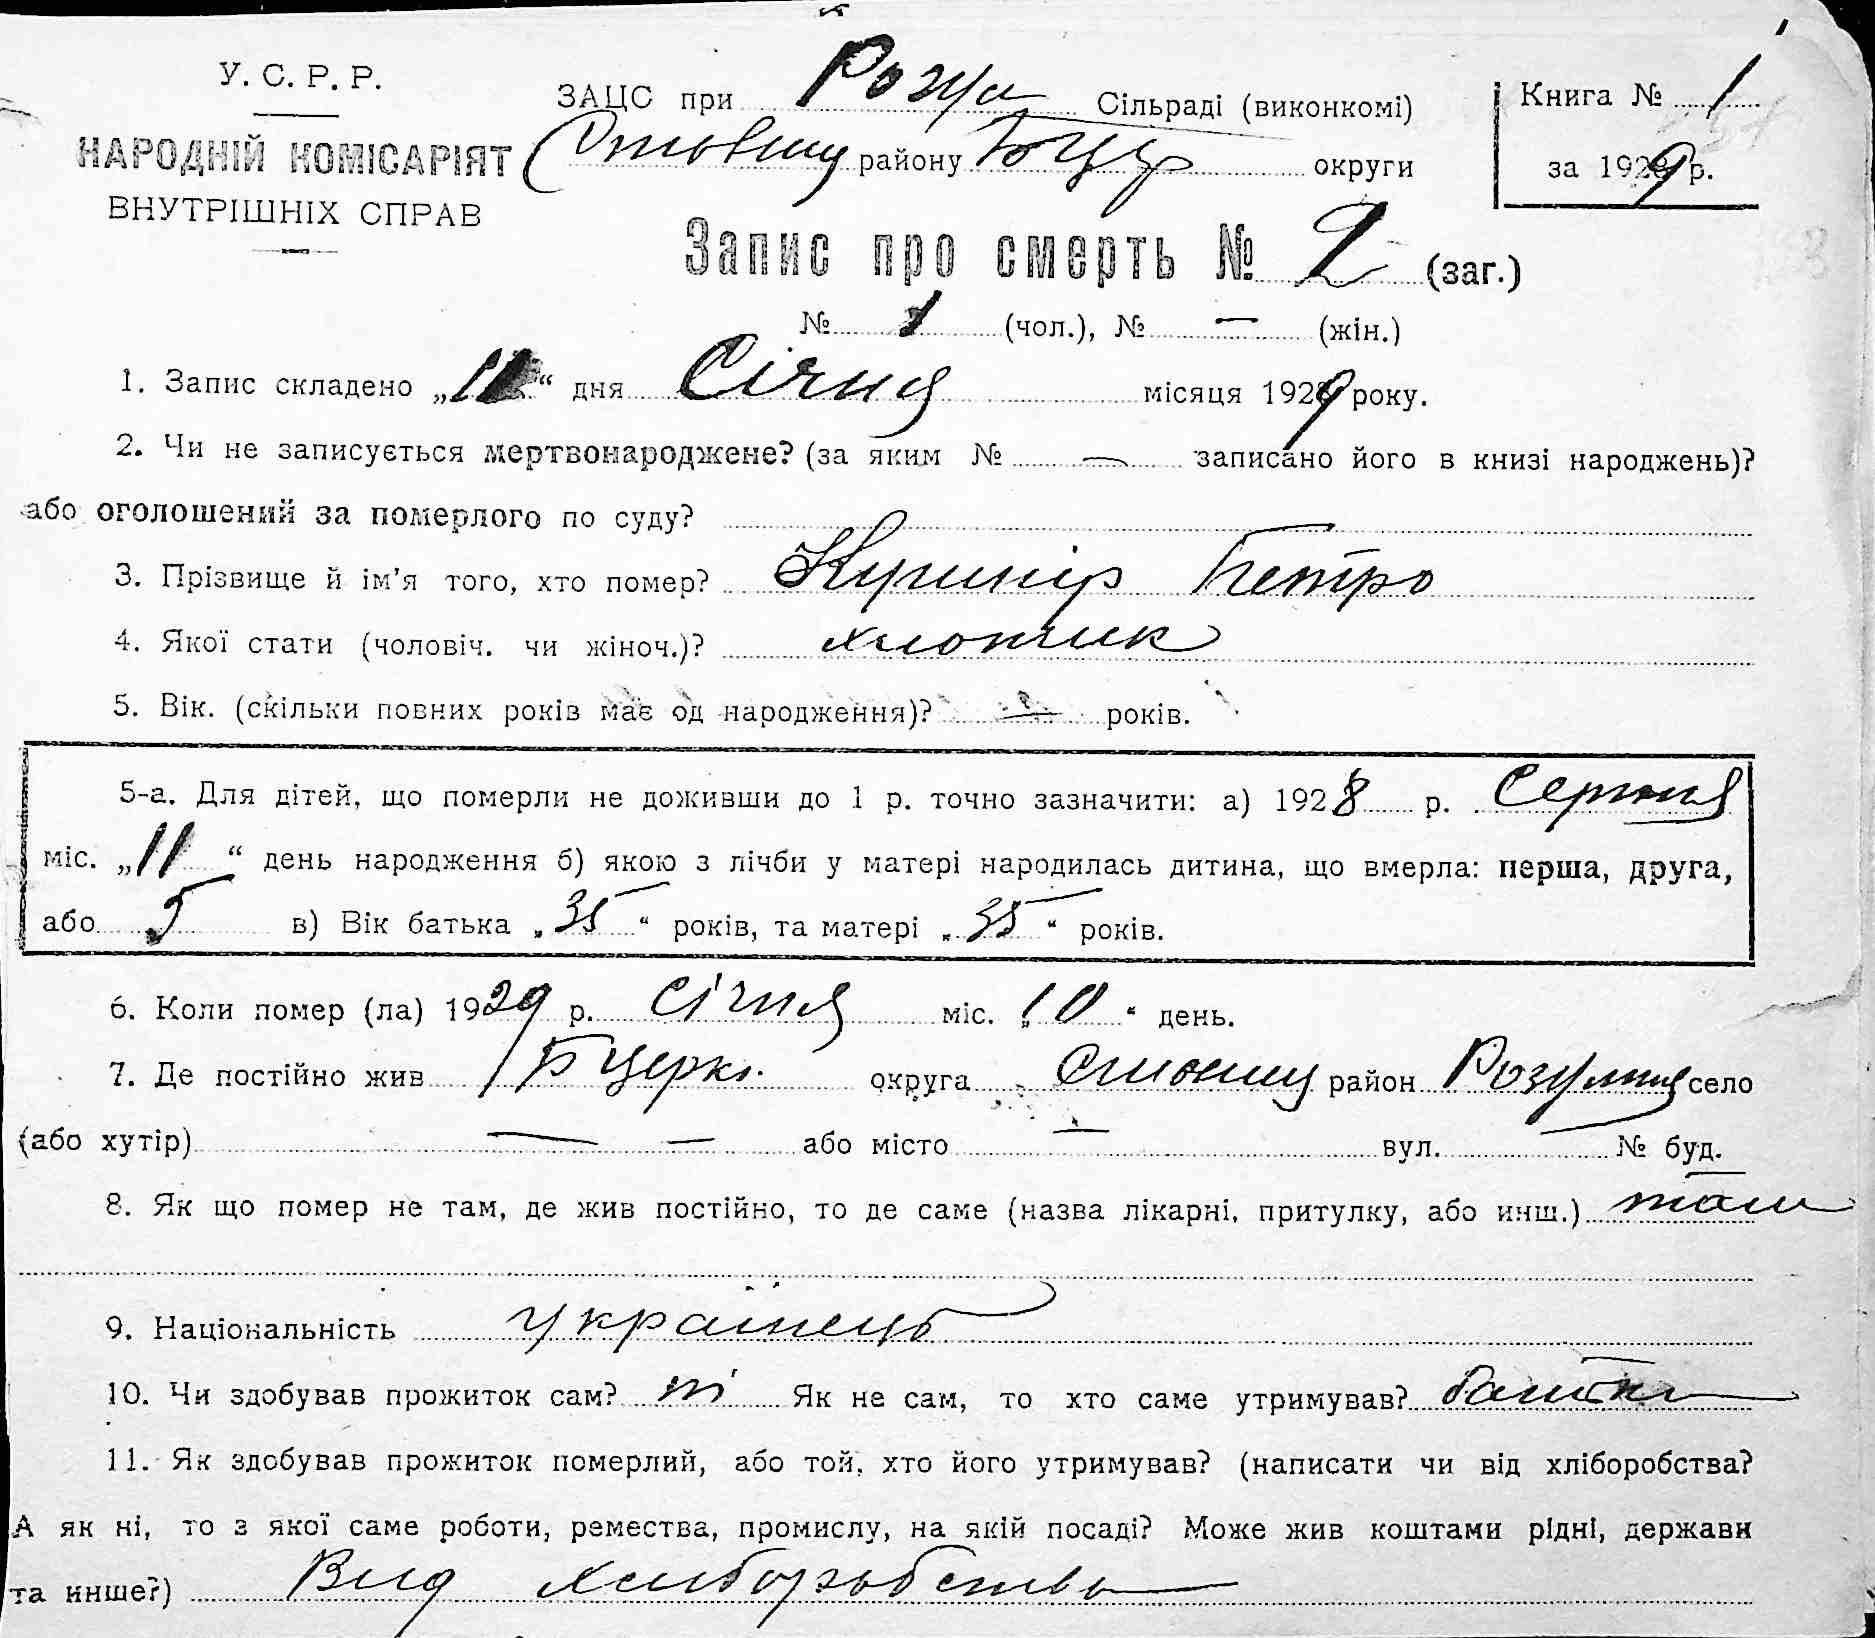 У. С. Р. Р.
НАРОДНІЙ КОМІСАРІЯТ
ВНУТРІШНІХ СПРАВ
ЗАЦС при Сільраді (виконкомі)
району округи
Книга № 1
за 1929 р.
Запис про смерть № 2 (заг.)
№ 1 (чол.), № — (жін.)
1. Запис складено „11“ дня Січня місяця 1929 року.
2. Чи не записується мертвонароджене? (за яким № — записано його в книзі народжень)?
або оголошений за померлого по суду?
3. Прізвище й ім'я того, хто помер? Кушнір Петро
4. Якої стати (чоловіч. чи жіноч.)? хлопчик
5. Вік. (скільки повних років має од народження)? — років.
5-а. Для дітей, що померли не доживши до 1 р. точно зазначити: а) 1928 р. Серпня
міс. „11“ день народження б) якою з лічби у матері народилась дитина, що вмерла: перша, друга,
або 5 в) Вік батька „35“ років, та матері „35“ років.
6. Коли помер (ла) 1929 р. Січня міс. „10“ день.
7. Де постійно жив Б Церкл. округа район село
(або хутір) — — або місто — вул. — № буд. —
8. Як що помер не там, де жив постійно, то де саме (назва лікарні, притулку, або инш.) там
9. Національність українець
10. Чи здобував прожиток сам? ні Як не сам, то хто саме утримував? батьки
11. Як здобував прожиток померлий, або той, хто його утримував? (написати чи від хліборобства?
А як ні, то з якої саме роботи, ремества, промислу, на якій посаді? Може жив коштами рідні, держави
та инше?) Вид хлиборобства